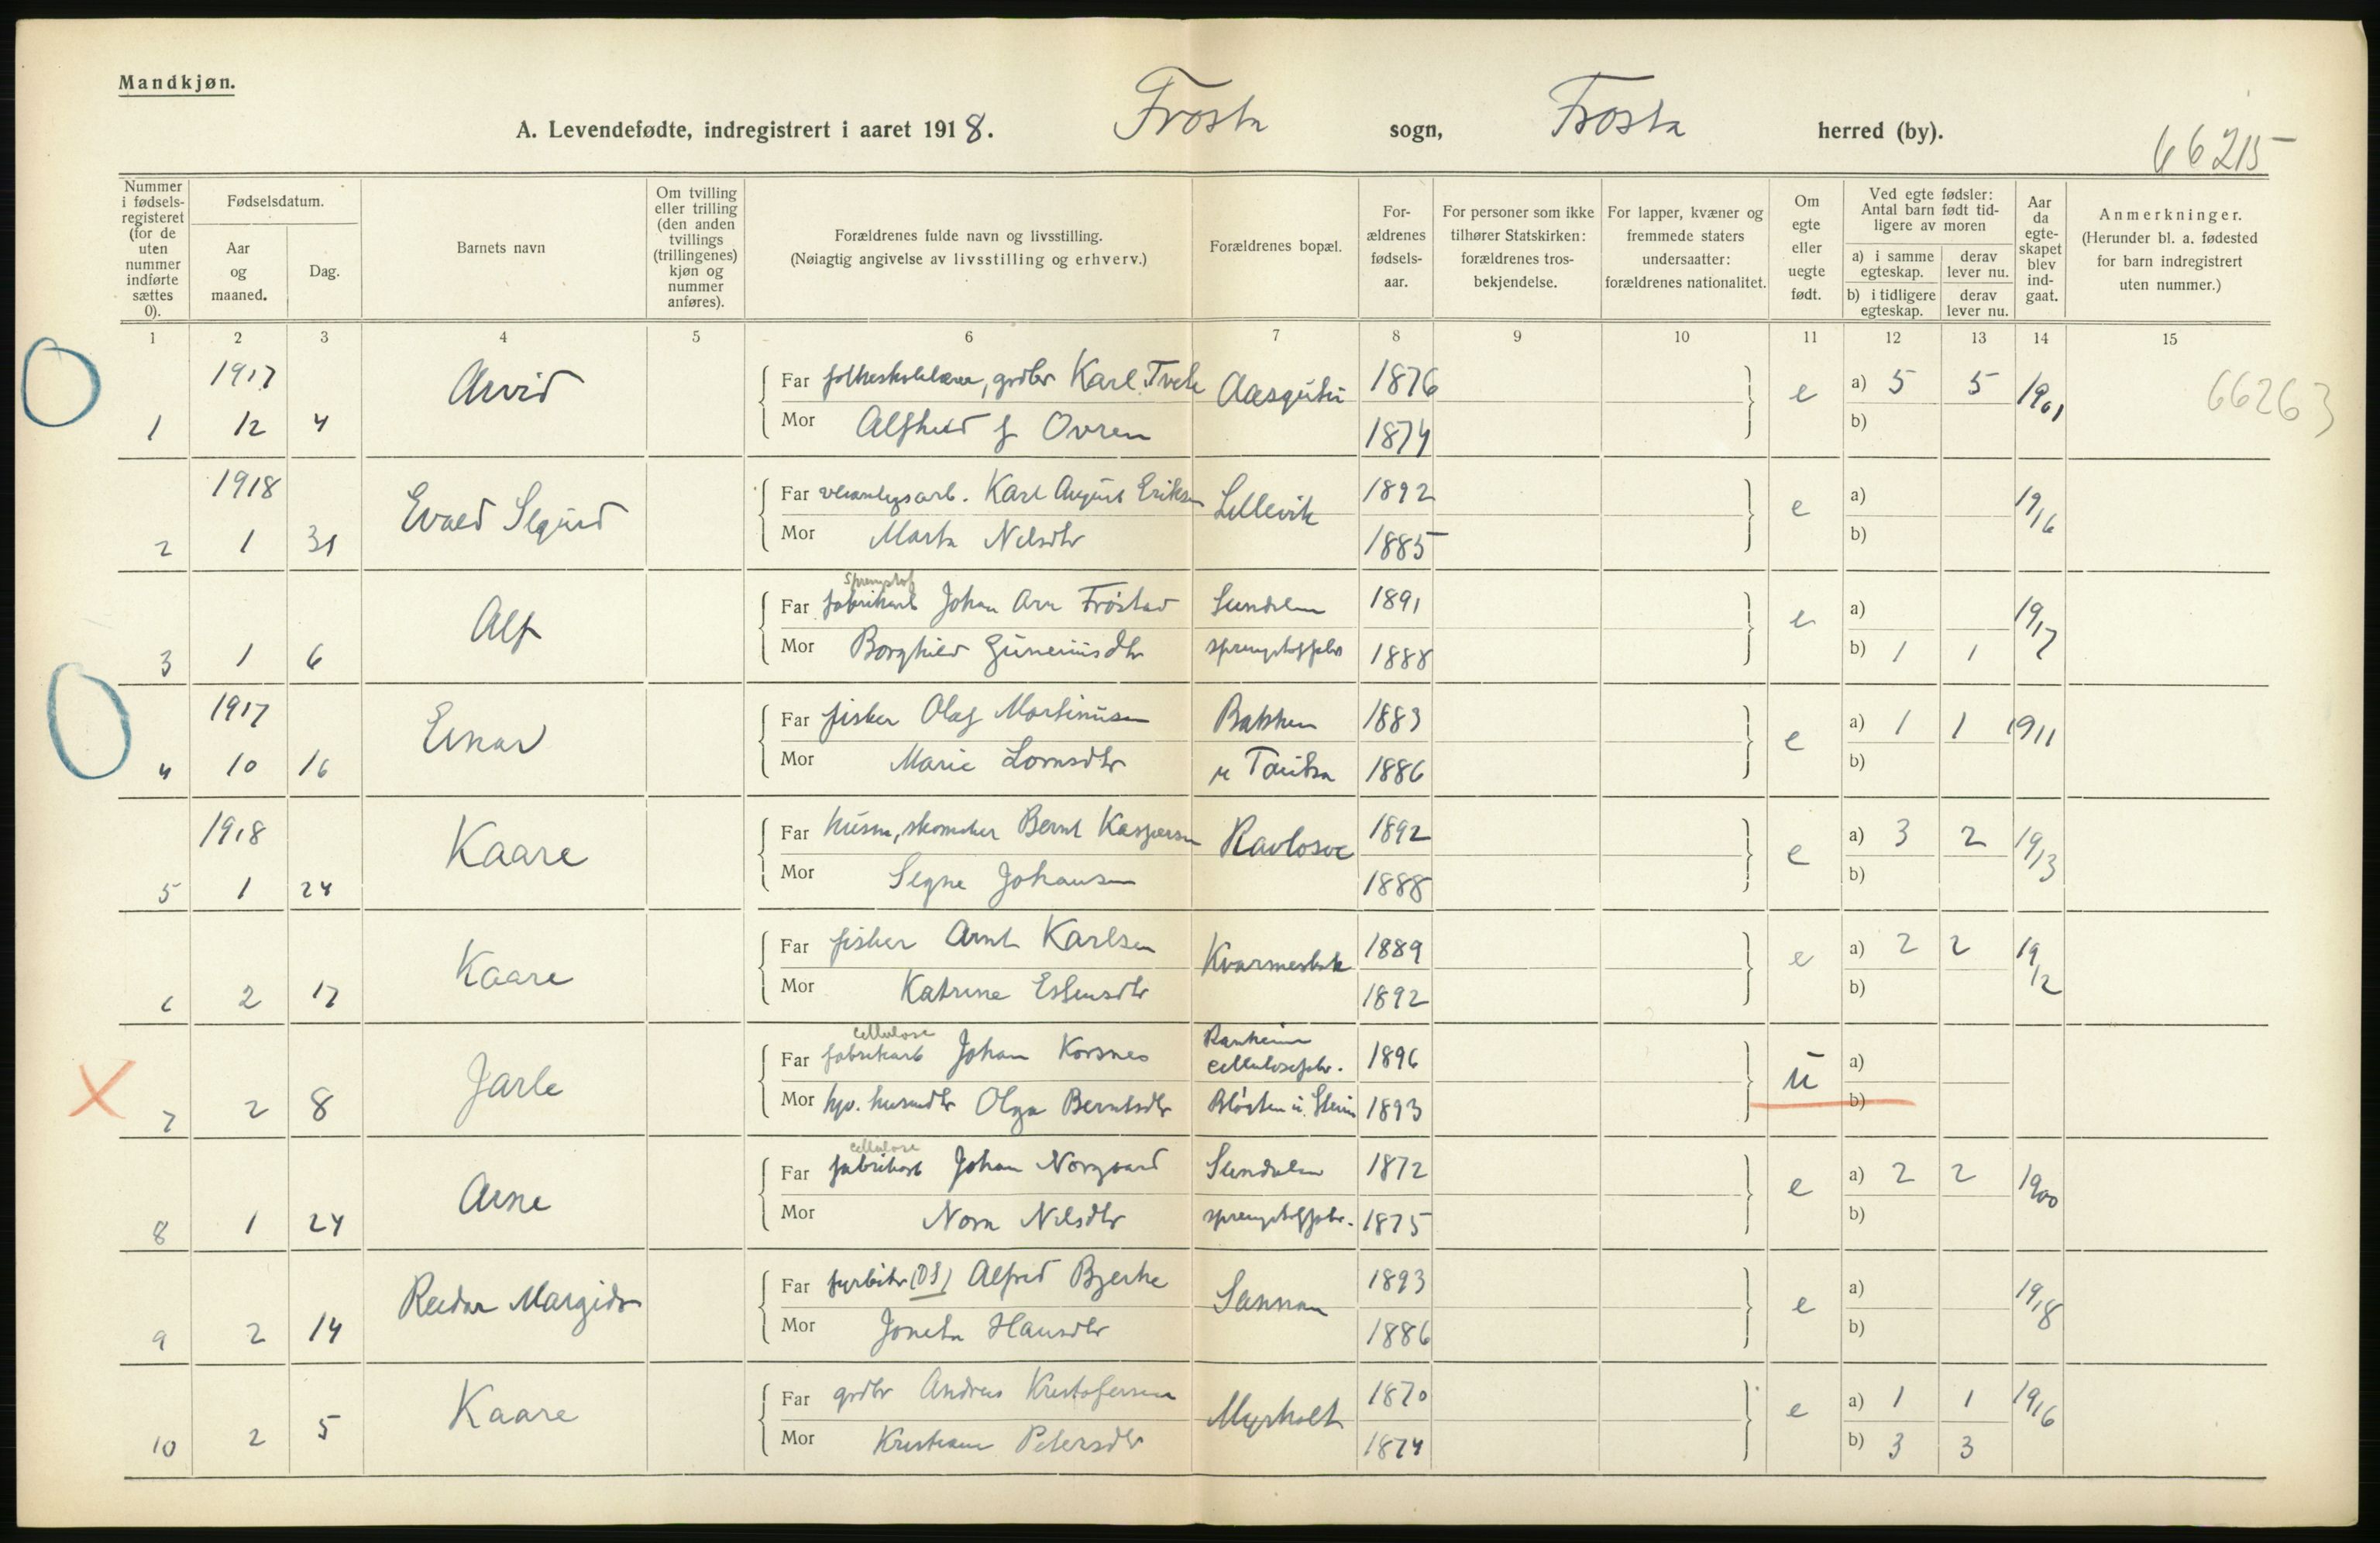 Mandkjøn.
A. Levendefødte, indregistrert i aaret 1918. Frosta sogn, Frosta herred (by).
66215
Nummer i fødsels-registeret (for de uten nummer indførte sættes 0).
Fødselsdatum.
Aar og maaned.
Dag.
Barnets navn
Om tvilling eller trilling (den anden tvillings (trillingenes) kjøn og nummer anføres).
Forældrenes fulde navn og livsstilling.
(Nøiagtig angivelse av livsstilling og erhverv.)
Forældrenes bopæl.
For-ældrenes fødsels-aar.
For personer som ikke tilhører Statskirken: forældrenes tros-bekjendelse.
For lapper, kvæner og fremmede staters undersaatter: forældrenes nationalitet.
Om egte eller uegte født.
Ved egte fødsler: Antal barn født tid-ligere av moren
a) i samme egteskap.
derav lever nu.
b) i tidligere egteskap.
derav lever nu.
Aar da egte-skapet blev ind-gaat.
Anmerkninger.
(Herunder bl. a. fødested for barn indregistrert uten nummer.)
1 2 3 4 5 6 7 8 9 10 11 12 13 14 15
1917 Arvid Far Karl 1876 e a) 5 5 1901 66263
1 12 4 Mor Alfhild f Ovren 1874 b)
1918 Evald Sigurd Far Karl August Eriksen Lillevik 1892 e a) 1916
2 1 31 Mor Marta Nilsdtr 1885 b)
Sprengstof
Alf Far fabrikarb Johan Arn Frøstad 1891 e a) 1917
3 1 6 Mor Borghild Guneriusdtr sprengstoffabr 1888 b) 1 1
1917 Einar Far fisker Olaf Martinusen Bakken 1883 e a) 1 1 1911
4 10 16 Mor Marie Lornsdtr u Tautra 1886 b)
1918 Kaare Far husm, skomaker Bernt Kaspersen 1892 e a) 3 2 1913
5 1 24 Mor Signe Johansen 1888 b)
Kaare Far fisker Arnt Karlsen 1889 e a) 2 2 1912
6 2 17 Mor Katrine Estensdtr 1892 b)
cellulose Ranheim
Jarle Far fabrikarb Johan Korsnes cellulosefabr. 1896 u a)
7 2 8 Mor hjv. husmdtr Olga Berntsdtr 1893 b)
cellulose
Arne Far fabrikarb Johan Norgaard 1872 e a) 2 2 1900
8 1 24 Mor Nora Nilsdtr sprengstoffabr. 1875 b)
Reidar Margido Far fyrbøter (DS) Alfred Bjerke Sannan 1893 e a) 1918
9 2 14 Mor Joneta Hansdtr 1886 b)
Kaare Far grdbr Andreas Kristofersen Myrholt 1870 e a) 1 1 1916
10 2 5 Mor Kristiane Petersdtr 1874 b) 3 3